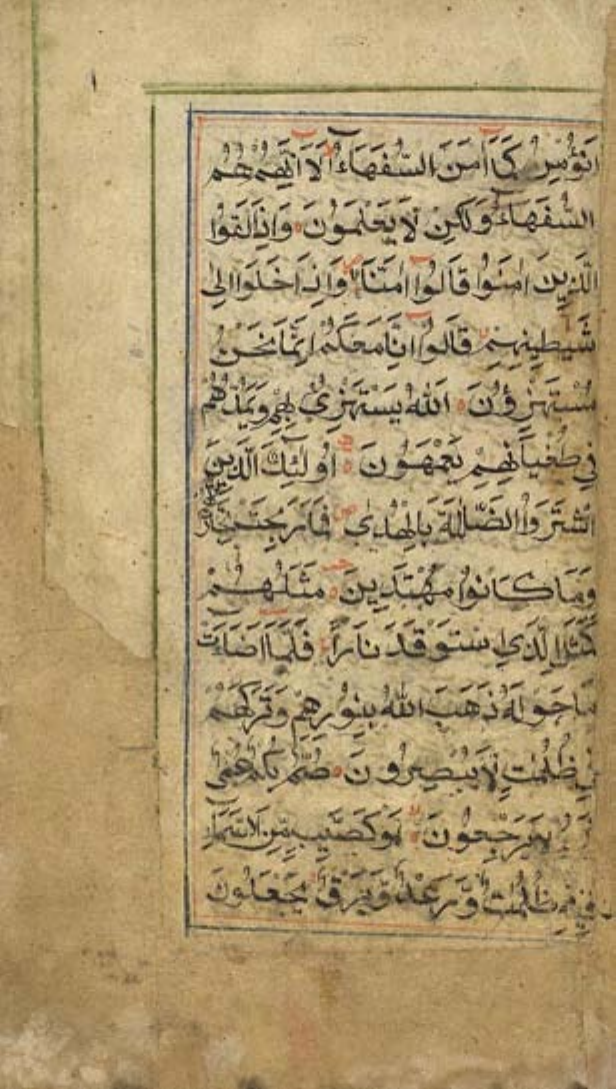 اَنُؤْمِنُ كَمَآ اٰمَنَ السُّفَهَآءُ اَلَآ اِنَّهُمْ هُمُ
السُّفَهَآءُ وَلٰكِنْ لَا يَعْلَمُوْنَ وَاِذَا لَقُوا
الَّذِيْنَ اٰمَنُوْا قَالُوْٓا اٰمَنَّا وَاِذَا خَلَوْا اِلٰى
شَيٰطِيْنِهِمْ قَالُوْٓا اِنَّا مَعَكُمْ اِنَّمَا نَحْنُ
مُسْتَهْزِؤُنَ اَللّٰهُ يَسْتَهْزِئُ بِهِمْ وَيَمُدُّهُمْ
فِيْ طُغْيَانِهِمْ يَعْمَهُوْنَ اُولٰٓئِكَ الَّذِيْنَ
اشْتَرَوُا الضَّلٰلَةَ بِالْهُدٰى فَمَا رَبِحَتْ تِجَارَتُهُمْ
وَمَا كَانُوْا مُهْتَدِيْنَ مَثَلُهُمْ
كَمَثَلِ الَّذِي اسْتَوْقَدَ نَارًا فَلَمَّآ اَضَآءَتْ
مَا حَوْلَهُ ذَهَبَ اللّٰهُ بِنُوْرِهِمْ وَتَرَكَهُمْ
فِيْ ظُلُمٰتٍ لَا يُبْصِرُوْنَ صُمٌّ بُكْمٌ عُمْيٌ
يَرْجِعُوْنَ اَوْ كَصَيِّبٍ مِّنَ السَّمَآءِ
فِيْهِ ظُلُمٰتٌ وَّرَعْدٌ وَّبَرْقٌ يَجْعَلُوْنَ